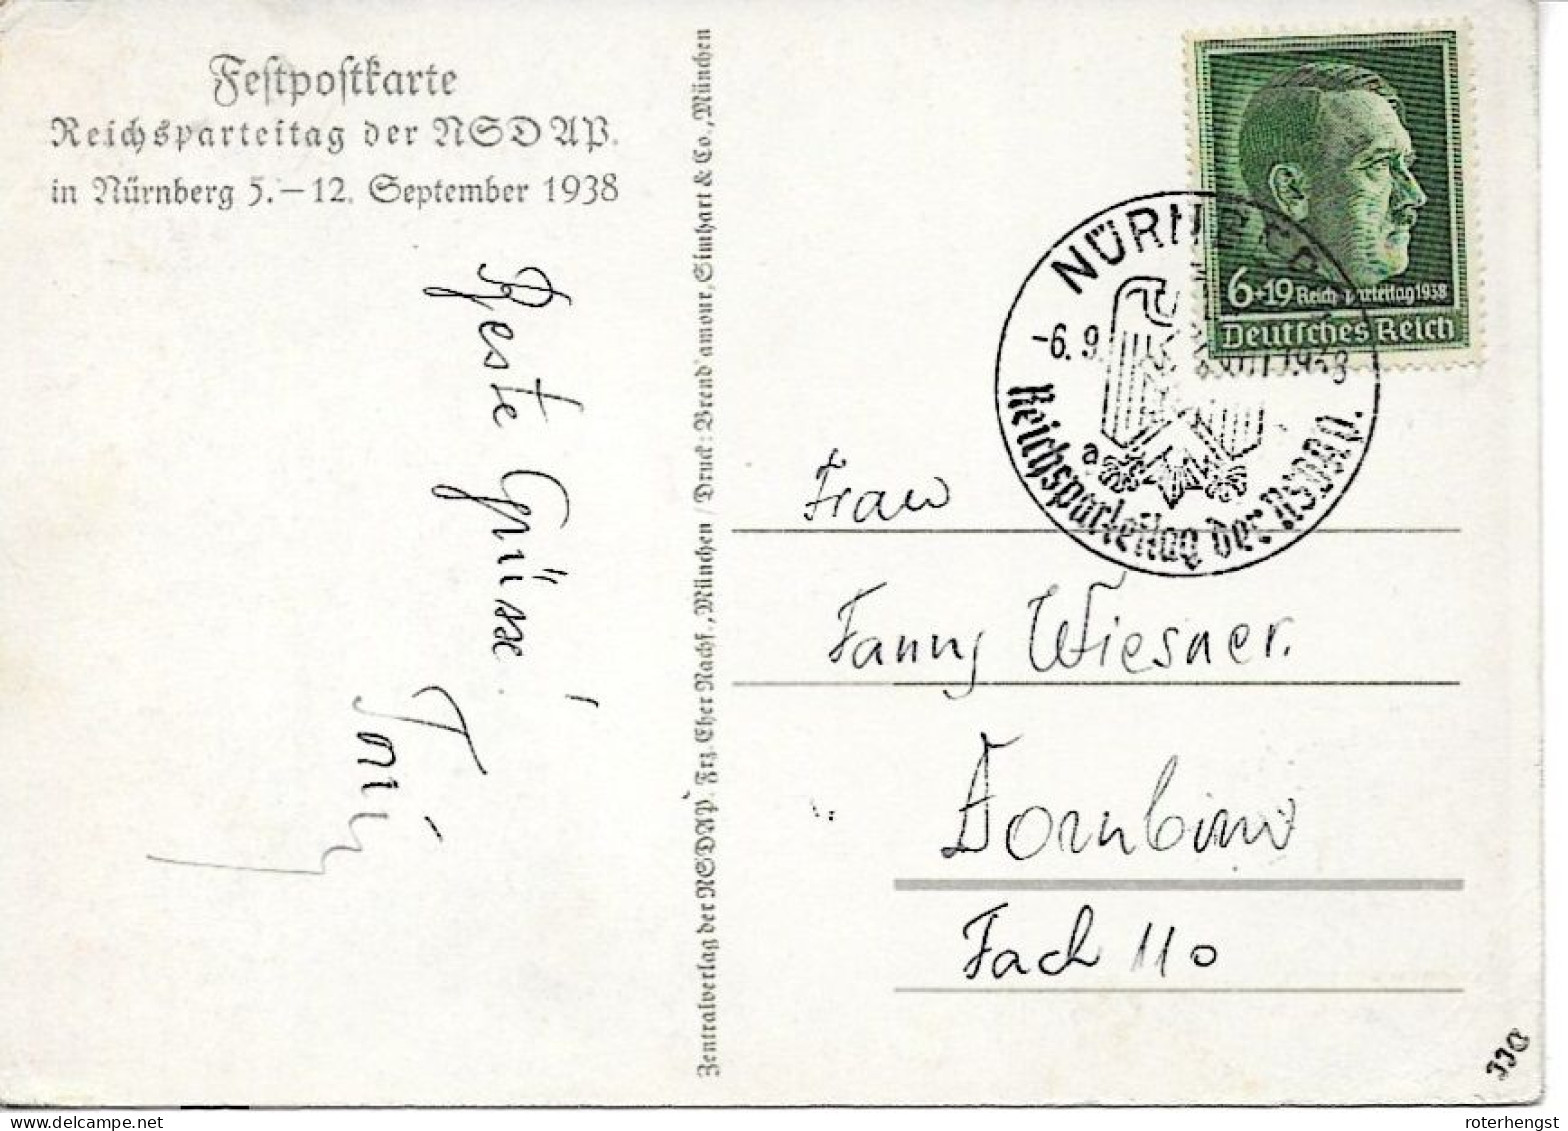 Festpostkarte
Reichsparteitag der NSDAP.
in Nürnberg 5.–12. September 1938
Beste Grüsse
Zentralverlag der NSDAP. Frz. Eher Nachf., München / Druck: Brend'amour, Simhart & Co., München
6+19 Reichsparteitag 1938
Deutsches Reich
NÜRNBERG
-6.9.
1938
a
Reichsparteitag der NSDAP.
Frau
Fanny Wiesner.
Dornbirn
Fach 110
roterhengst